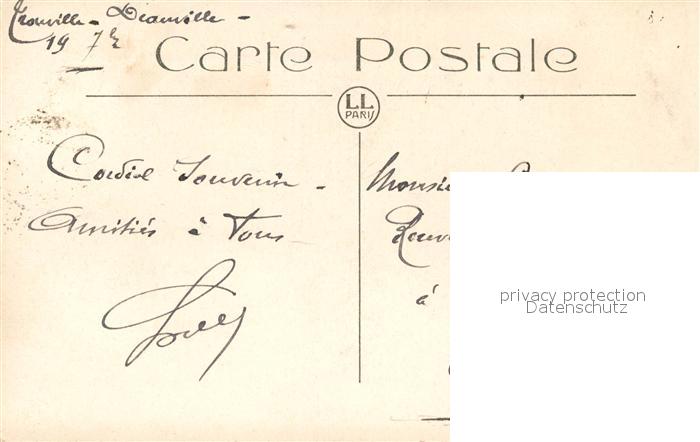 Trouville - Deauville -
19 7bre
Carte Postale
LL
PARIS
Cordial Souvenir -
Amitiés à Tous
Monsie
à
privacy protection
Datenschutz